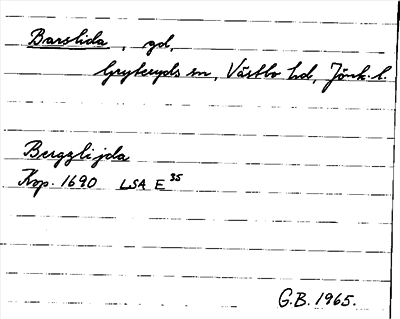 Barslida, gd,
Gryteryds sn, Västbo hd, Jönk. l.
Bergzlijda
Kop. 1690 LSA E 35
G.B. 1965.